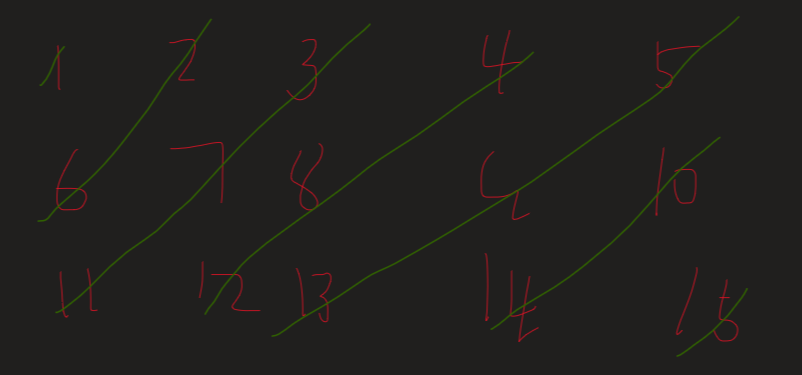 1 2 3 4 5
6 7 8 9 10
11 12 13 14 15